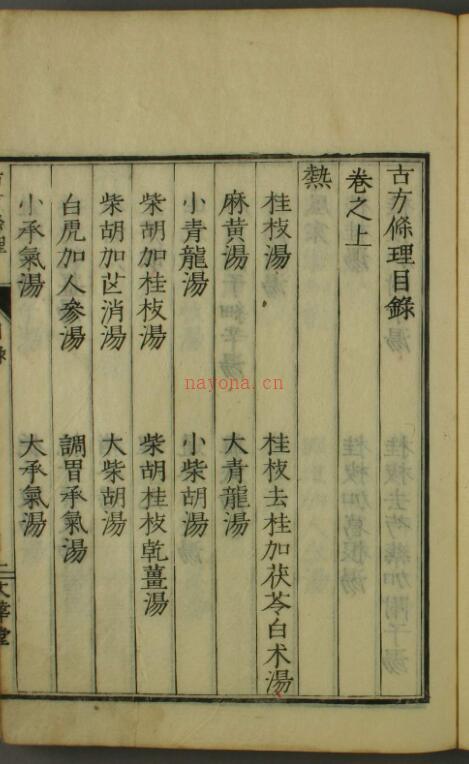 古方條理目錄
卷之上
熱
桂枝湯 桂枝去桂加茯苓白朮湯
麻黃湯 大青龍湯
小青龍湯 小柴胡湯
柴胡加桂枝湯 柴胡桂枝乾薑湯
柴胡加芒消湯 大柴胡湯
白虎加人參湯 調胃承氣湯
小承氣湯 大承氣湯
nayona.cn